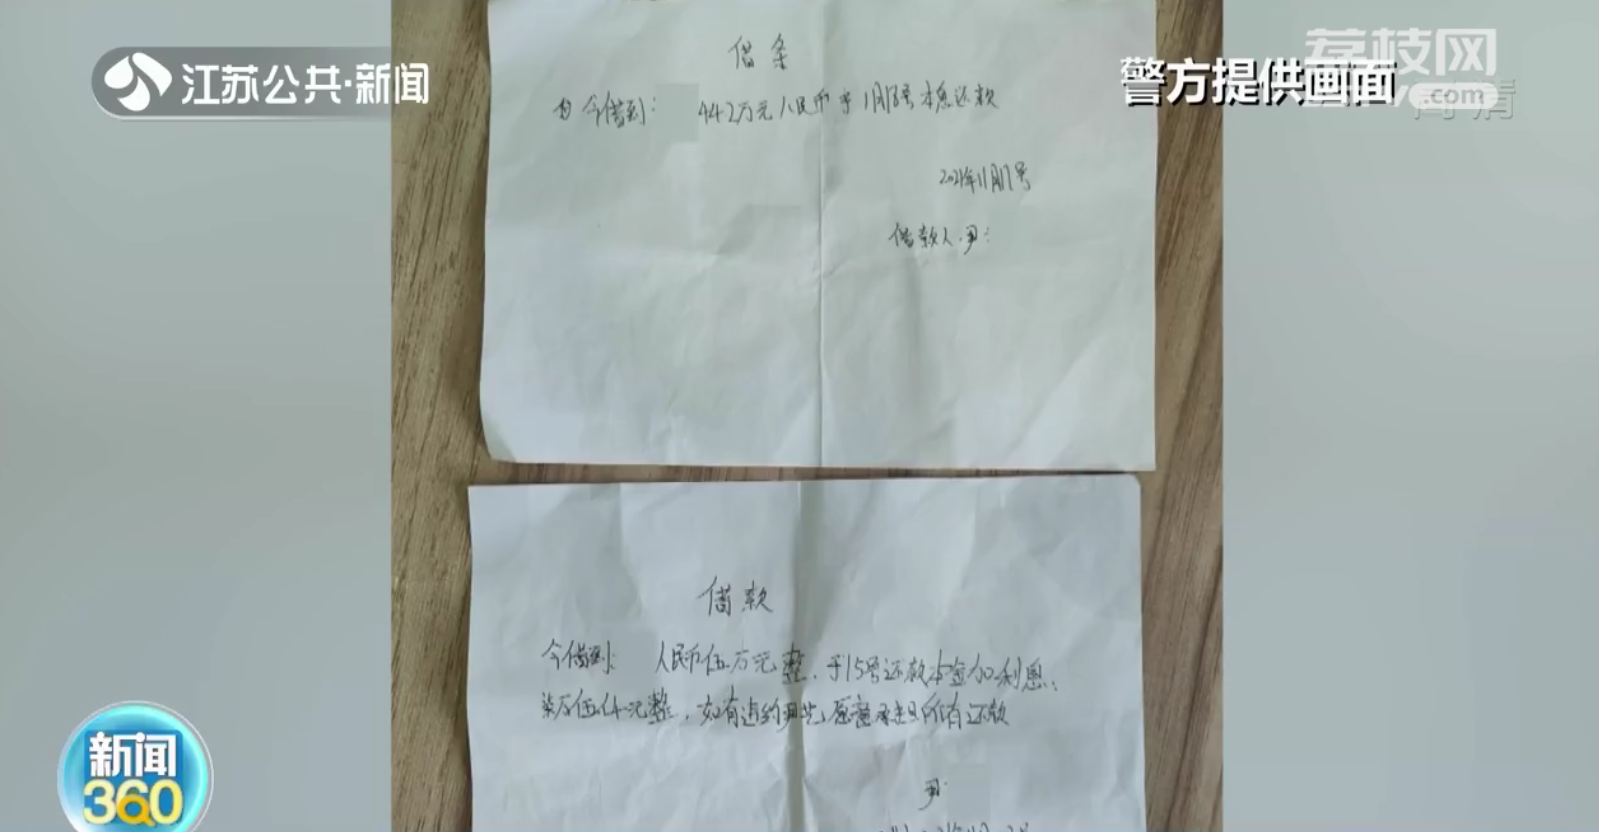 江苏公共·新闻
警方提供画面
荔枝网
.com
高清
借条
今借到: 442万元人民币于11月18号本息还款
2021年11月17号
借款人:尹:
借款
今借到: 人民币伍万元整,于15号还款本金加利息:
柒万伍仟元整,如有违约 愿意承担所有还款
尹:
新闻
360